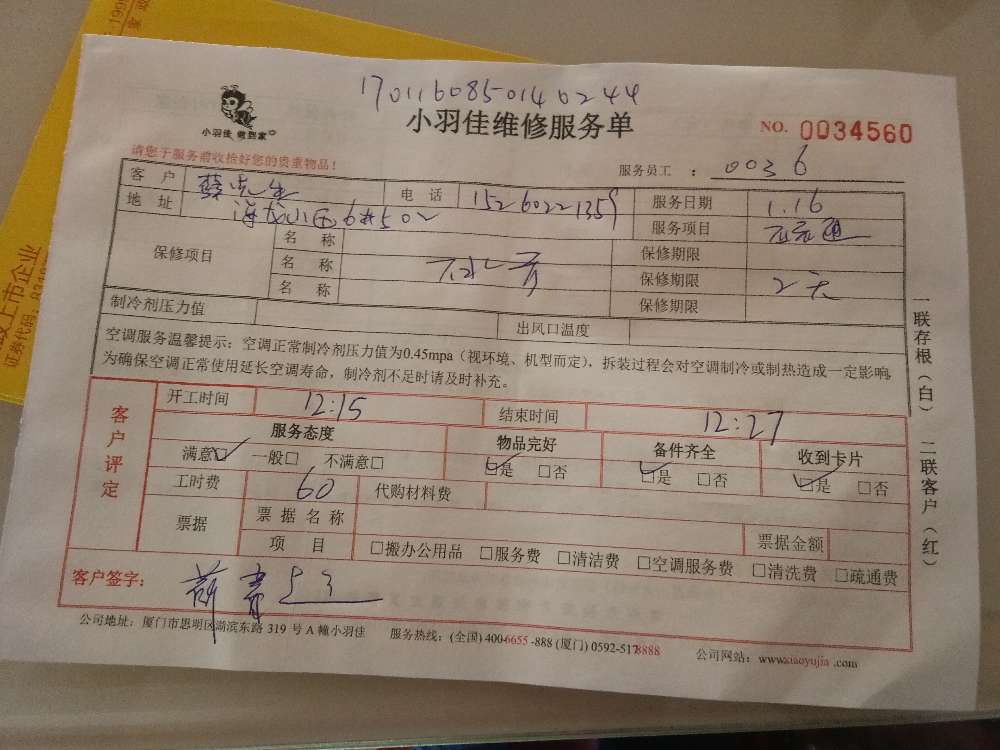 170116085014 0244
小羽佳 做到家
小羽佳维修服务单
NO. 0034560
请您于服务前收捡好您的贵重物品!
服务员工 : 0036
客户 蔡先生 电话 15260221359 服务日期 1.16
地址 6#502 服务项目
保修项目 名称 保修期限
名称 保修期限 2天
名称 保修期限
制冷剂压力值 出风口温度
空调服务温馨提示:空调正常制冷剂压力值为0.45mpa(视环境、机型而定),拆装过程会对空调制冷或制热造成一定影响
为确保空调正常使用延长空调寿命,制冷剂不足时请及时补充。
客户评定
开工时间 12:15 结束时间 12:27
服务态度 物品完好 备件齐全 收到卡片
满意☑ 一般□ 不满意□ ☑是 □否 ☑是 □否 ☑是 □否
工时费 60 代购材料费
票据 票据名称 票据金额
项目 □搬办公用品 □服务费 □清洁费 □空调服务费 □清洗费 □疏通费
客户签字:
公司地址:厦门市思明区湖滨东路 319 号 A 幢小羽佳 服务热线:(全国) 400-6655-888 (厦门) 0592-5178888 公司网站:www.xiaoyujia.com
一联存根(白) 二联客户(红)
上市企业
证券代码: